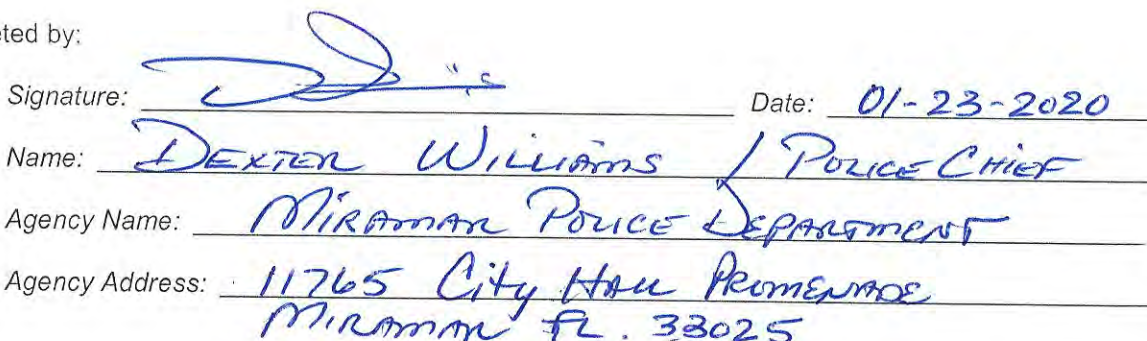 eted by:
Signature: Date: 01-23-2020
Name: DEXTER WILLIAMS / POLICE CHIEF
Agency Name: MIRAMAR POLICE DEPARTMENT
Agency Address: 11765 City HALL PROMENADE
MIRAMAR FL. 33025